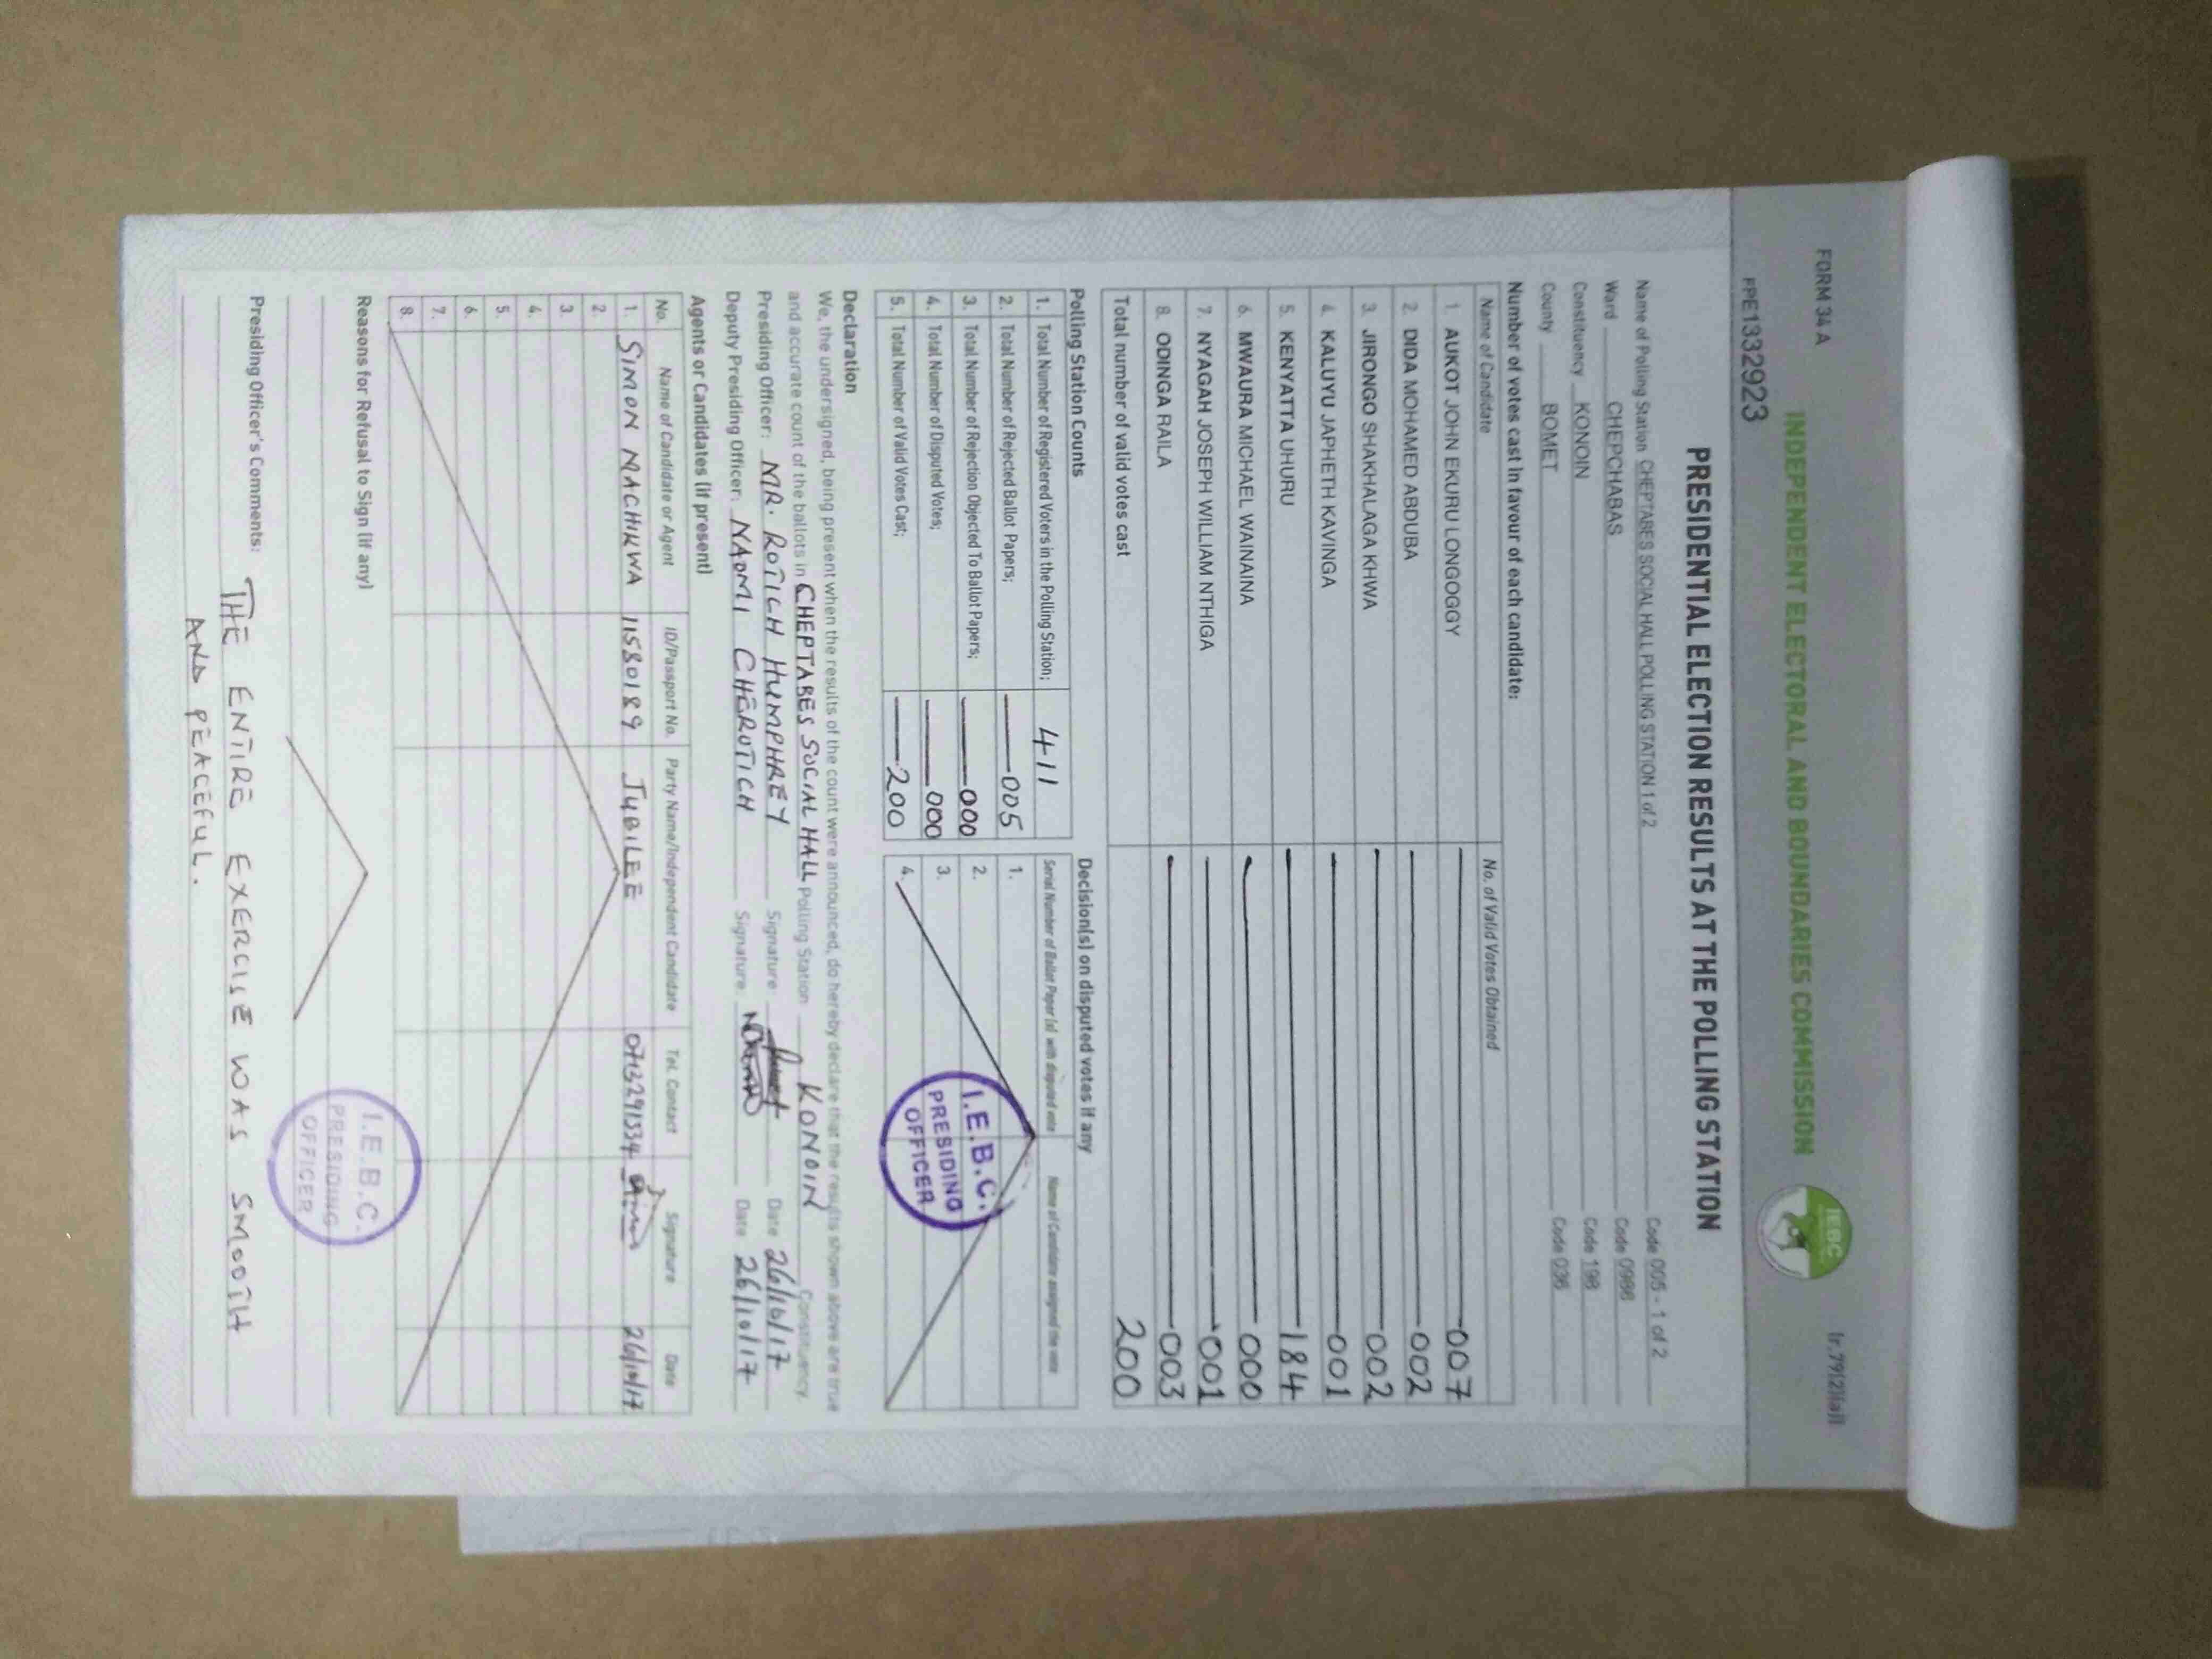 FORM 34 A
(r.79(2)(a))
INDEPENDENT ELECTORAL AND BOUNDARIES COMMISSION
IEBC
PE1332923
PRESIDENTIAL ELECTION RESULTS AT THE POLLING STATION
Name of Polling Station CHEPTABES SOCIAL HALL POLLING STATION 1 of 2 Code 005 - 1 of 2
Ward CHEPCHABAS Code 0986
Constituency KONOIN Code 198
County BOMET Code 036
Number of votes cast in favour of each candidate:
Name of Candidate No. of Valid Votes Obtained
1 AUKOT JOHN EKURU LONGOGGY 007
2. DIDA MOHAMED ABDUBA 002
3. JIRONGO SHAKHALAGA KHWA 002
4. KALUYU JAPHETH KAVINGA 001
5. KENYATTA UHURU 184
6. MWAURA MICHAEL WAINAINA 000
7. NYAGAH JOSEPH WILLIAM NTHIGA 001
8. ODINGA RAILA 003
Total number of valid votes cast 200
Polling Station Counts
1. Total Number of Registered Voters in the Polling Station; 411
2. Total Number of Rejected Ballot Papers; 005
3. Total Number of Rejection Objected To Ballot Papers; 000
4. Total Number of Disputed Votes; 000
5. Total Number of Valid Votes Cast; 200
Decision(s) on disputed votes if any
Serial Number of Ballot Paper (s) with disputed vote Name of Candidate assigned the vote
1.
2.
3.
4.
I.E.B.C.
PRESIDING
OFFICER
Declaration
We, the undersigned, being present when the results of the count were announced, do hereby declare that the results shown above are true
and accurate count of the ballots in CHEPTABES SOCIAL HALL Polling Station KONOIN Constituency.
Presiding Officer: MR. ROTICH HUMPHREY Signature Date 26/10/17
Deputy Presiding Officer: NAOMI CHEROTICH Signature Date 26/10/17
Agents or Candidates (if present)
No. Name of Candidate or Agent ID/Passport No. Party Name/Independent Candidate Tel. Contact Signature Date
1. SIMON NACHIKWA 11580189 JUBILEE 0713291534 26/10/17
2.
3.
4.
5.
6.
7.
8.
Reasons for Refusal to Sign (if any)
I.E.B.C.
PRESIDING
OFFICER
Presiding Officer's Comments: THE ENTIRE EXERCISE WAS SMOOTH
AND PEACEFUL.